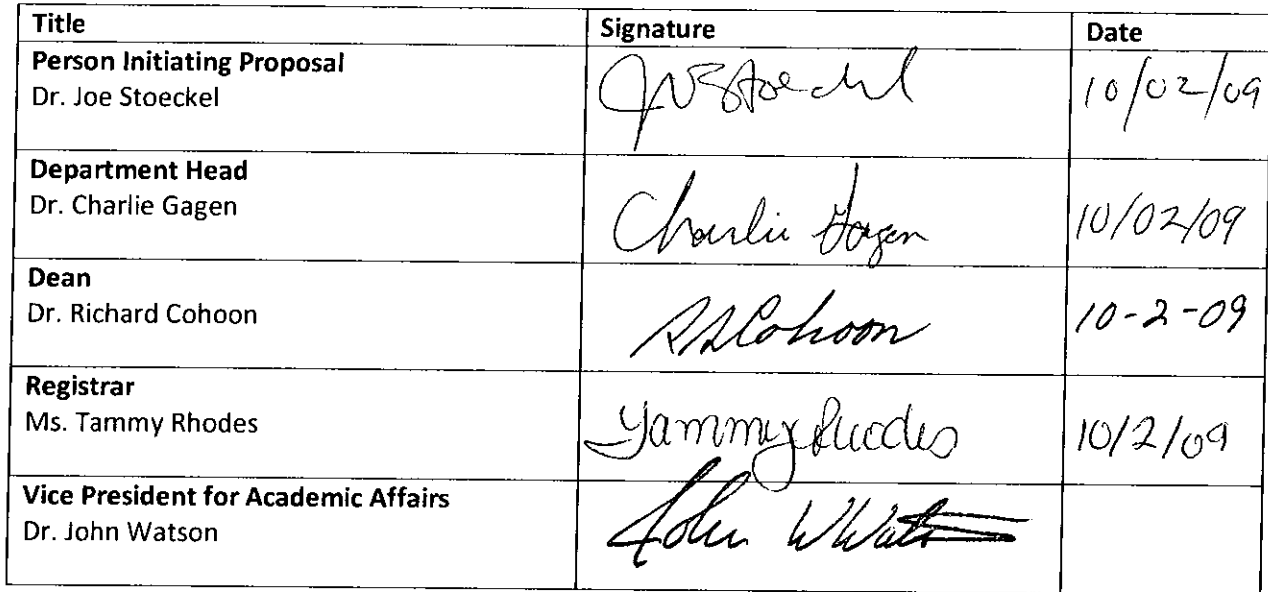 Title Signature Date
Person Initiating Proposal
Dr. Joe Stoeckel JWStoeckel 10/02/09
Department Head
Dr. Charlie Gagen Charlie Gagen 10/02/09
Dean
Dr. Richard Cohoon Cohoon 10-2-09
Registrar
Ms. Tammy Rhodes Tammy Rhodes 10/2/09
Vice President for Academic Affairs
Dr. John Watson John W Watson